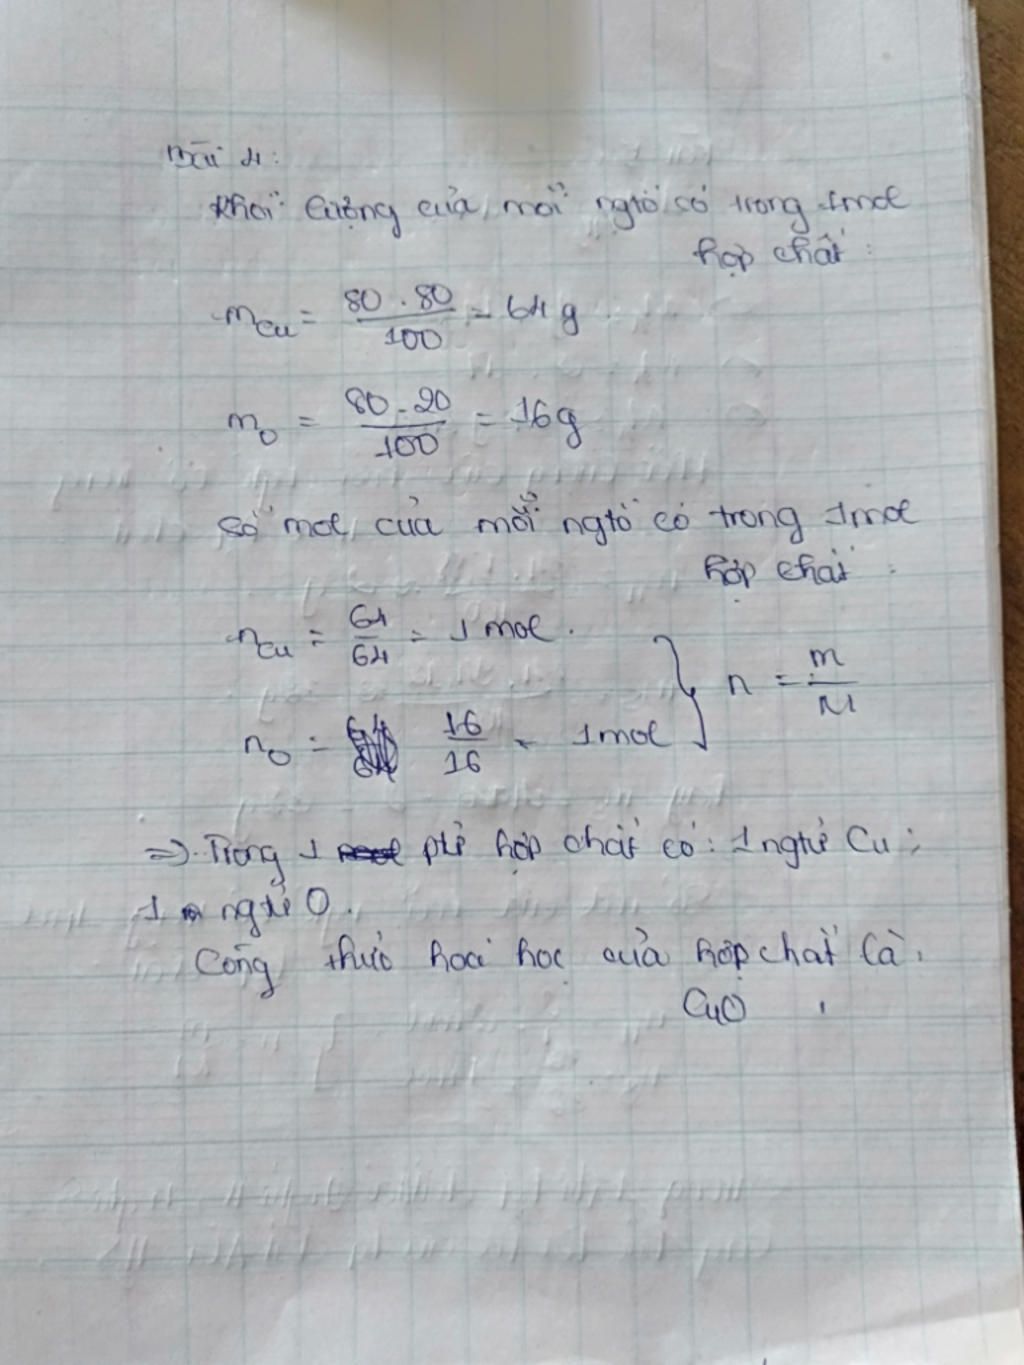 Bài 4:
Khối lượng của mỗi ngtố có trong 1mol
hợp chất:
mCu = 80 . 80 / 100 = 64 g
mO = 80 . 20 / 100 = 16g
số mol của mỗi ngtố có trong 1mol
hợp chất:
nCu = 64 / 64 = 1 mol.
nO = 16 / 16 = 1mol } n = m / M
=> Trong 1 ptử hợp chất có: 1 ngtử Cu;
1 ngtử O.
Công thức hoá học của hợp chất là:
CuO.